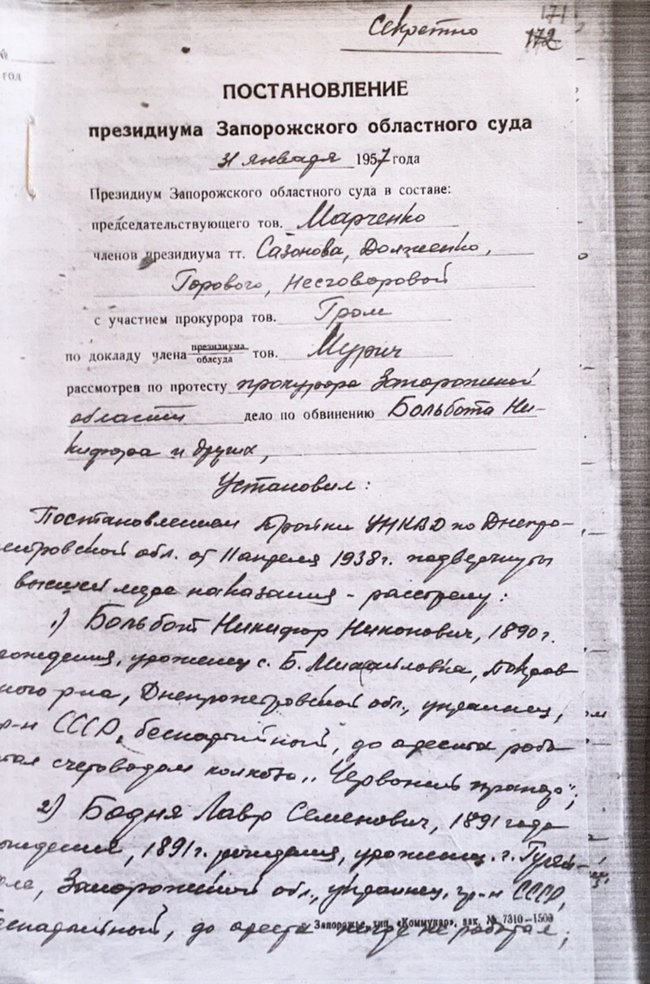 Секретно
171
172
№
год
ПОСТАНОВЛЕНИЕ
президиума Запорожского областного суда
31 января 1957 года
Президиум Запорожского областного суда в составе:
председательствующего тов. Марченко
членов президиума тт. Сазонова, Долженко,
Горового, Несговоровой
с участием прокурора тов. Гром
по докладу члена президиума облсуда тов. Мурич
рассмотрев по протесту прокурора Запорожской
области дело по обвинению Больбота Ни-
кифора и других,
Установил:
Постановлением Тройки УНКВД по Днепро-
петровской обл. от 11 апреля 1938 г. подвергнуты
высшей мере наказания - расстрелу:
1) Больбот Никифор Никонович, 1890 г.
рождения, уроженец с. Б. Михайловка, Покров
ного р-на, Днепропетровской обл., украинец,
гр-н СССР, беспартийный, до ареста рабо
тал счетоводом колхоза „Червоний прапор";
2) Бодня Лавр Семенович, 1891 года
рождения, 1891 г. рождения, уроженец г. Гуляй-
поле, Запорожской обл., украинец, гр-н СССР,
беспартийный, до ареста нигде не работал;
Запорожье, тип. «Коммунар», зак. № 7310—1500